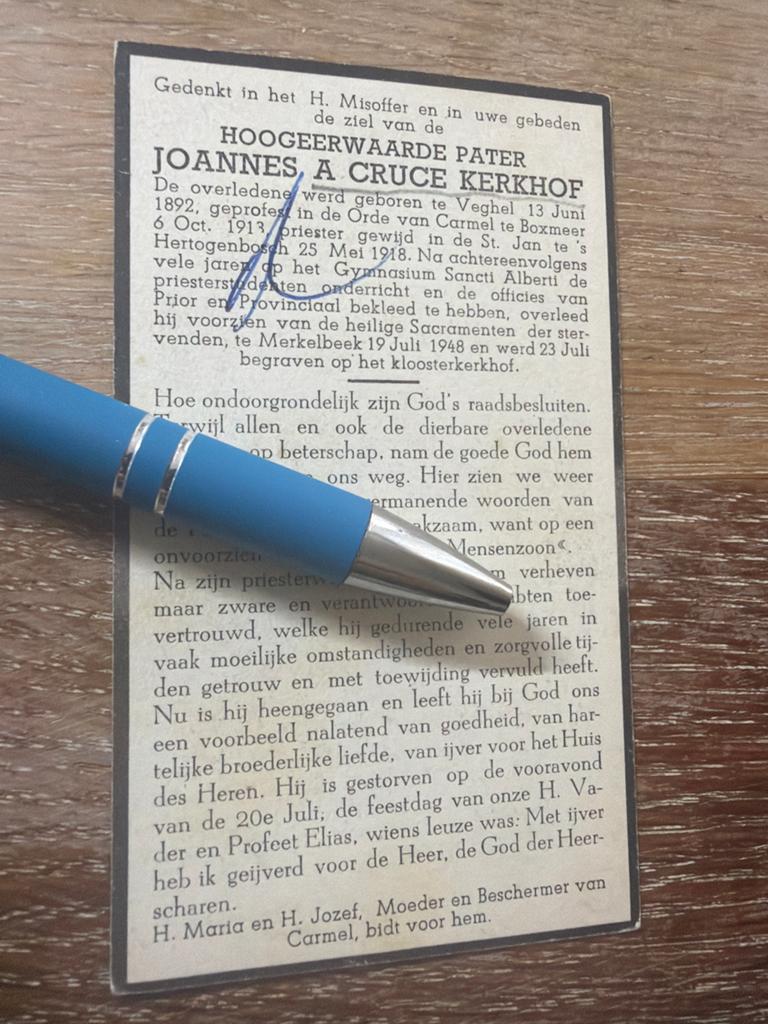 Gedenkt in het H. Misoffer en in uwe gebeden
de ziel van de
HOOGEERWAARDE PATER
JOANNES A CRUCE KERKHOF
De overledene werd geboren te Veghel 13 Juni
1892, geprofest in de Orde van Carmel te Boxmeer
6 Oct. 1913, priester gewijd in de St. Jan te 's
Hertogenbosch 25 Mei 1918. Na achtereenvolgens
vele jaren op het Gymnasium Sancti Alberti de
priesterstudenten onderricht en de officies van
Prior en Provinciaal bekleed te hebben, overleed
hij voorzien van de heilige Sacramenten der ster-
venden, te Merkelbeek 19 Juli 1948 en werd 23 Juli
begraven op het kloosterkerkhof.
Hoe ondoorgrondelijk zijn God's raadsbesluiten.
Terwijl allen en ook de dierbare overledene
op beterschap, nam de goede God hem
ons weg. Hier zien we weer
woorden van
de want op een
Mensenzoon«.
Na zijn verheven
maar zware en toe-
vertrouwd, welke hij gedurende vele jaren in
vaak moeilijke omstandigheden en zorgvolle tij-
den getrouw en met toewijding vervuld heeft.
Nu is hij heengegaan en leeft hij bij God ons
een voorbeeld nalatend van goedheid, van har-
telijke broederlijke liefde, van ijver voor het Huis
des Heren. Hij is gestorven op de vooravond
van de 20e Juli, de feestdag van onze H. Va-
der en Profeet Elias, wiens leuze was: Met ijver
heb ik geijverd voor de Heer, de God der Heer-
scharen.
H. Maria en H. Jozef, Moeder en Beschermer van
Carmel, bidt voor hem.